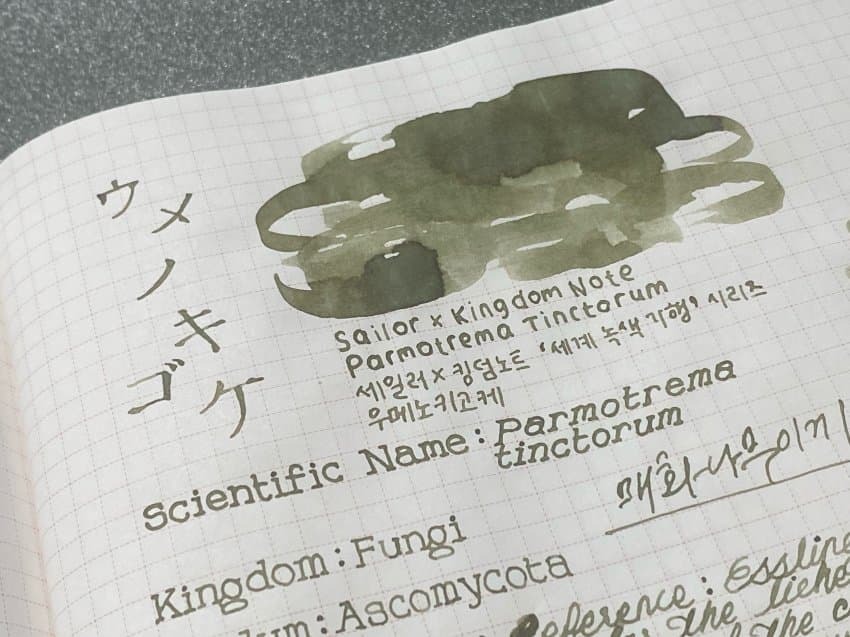 ウメノキゴケ
Sailor × Kingdom Note
Parmotrema Tinctorum
세일러×킹덤노트 '세계 녹색 기행' 시리즈
우메노키고케
Scientific Name: Parmotrema
tinctorum
매화나무이끼
Kingdom: Fungi
Ascomycota
Reference: Essling
the
the